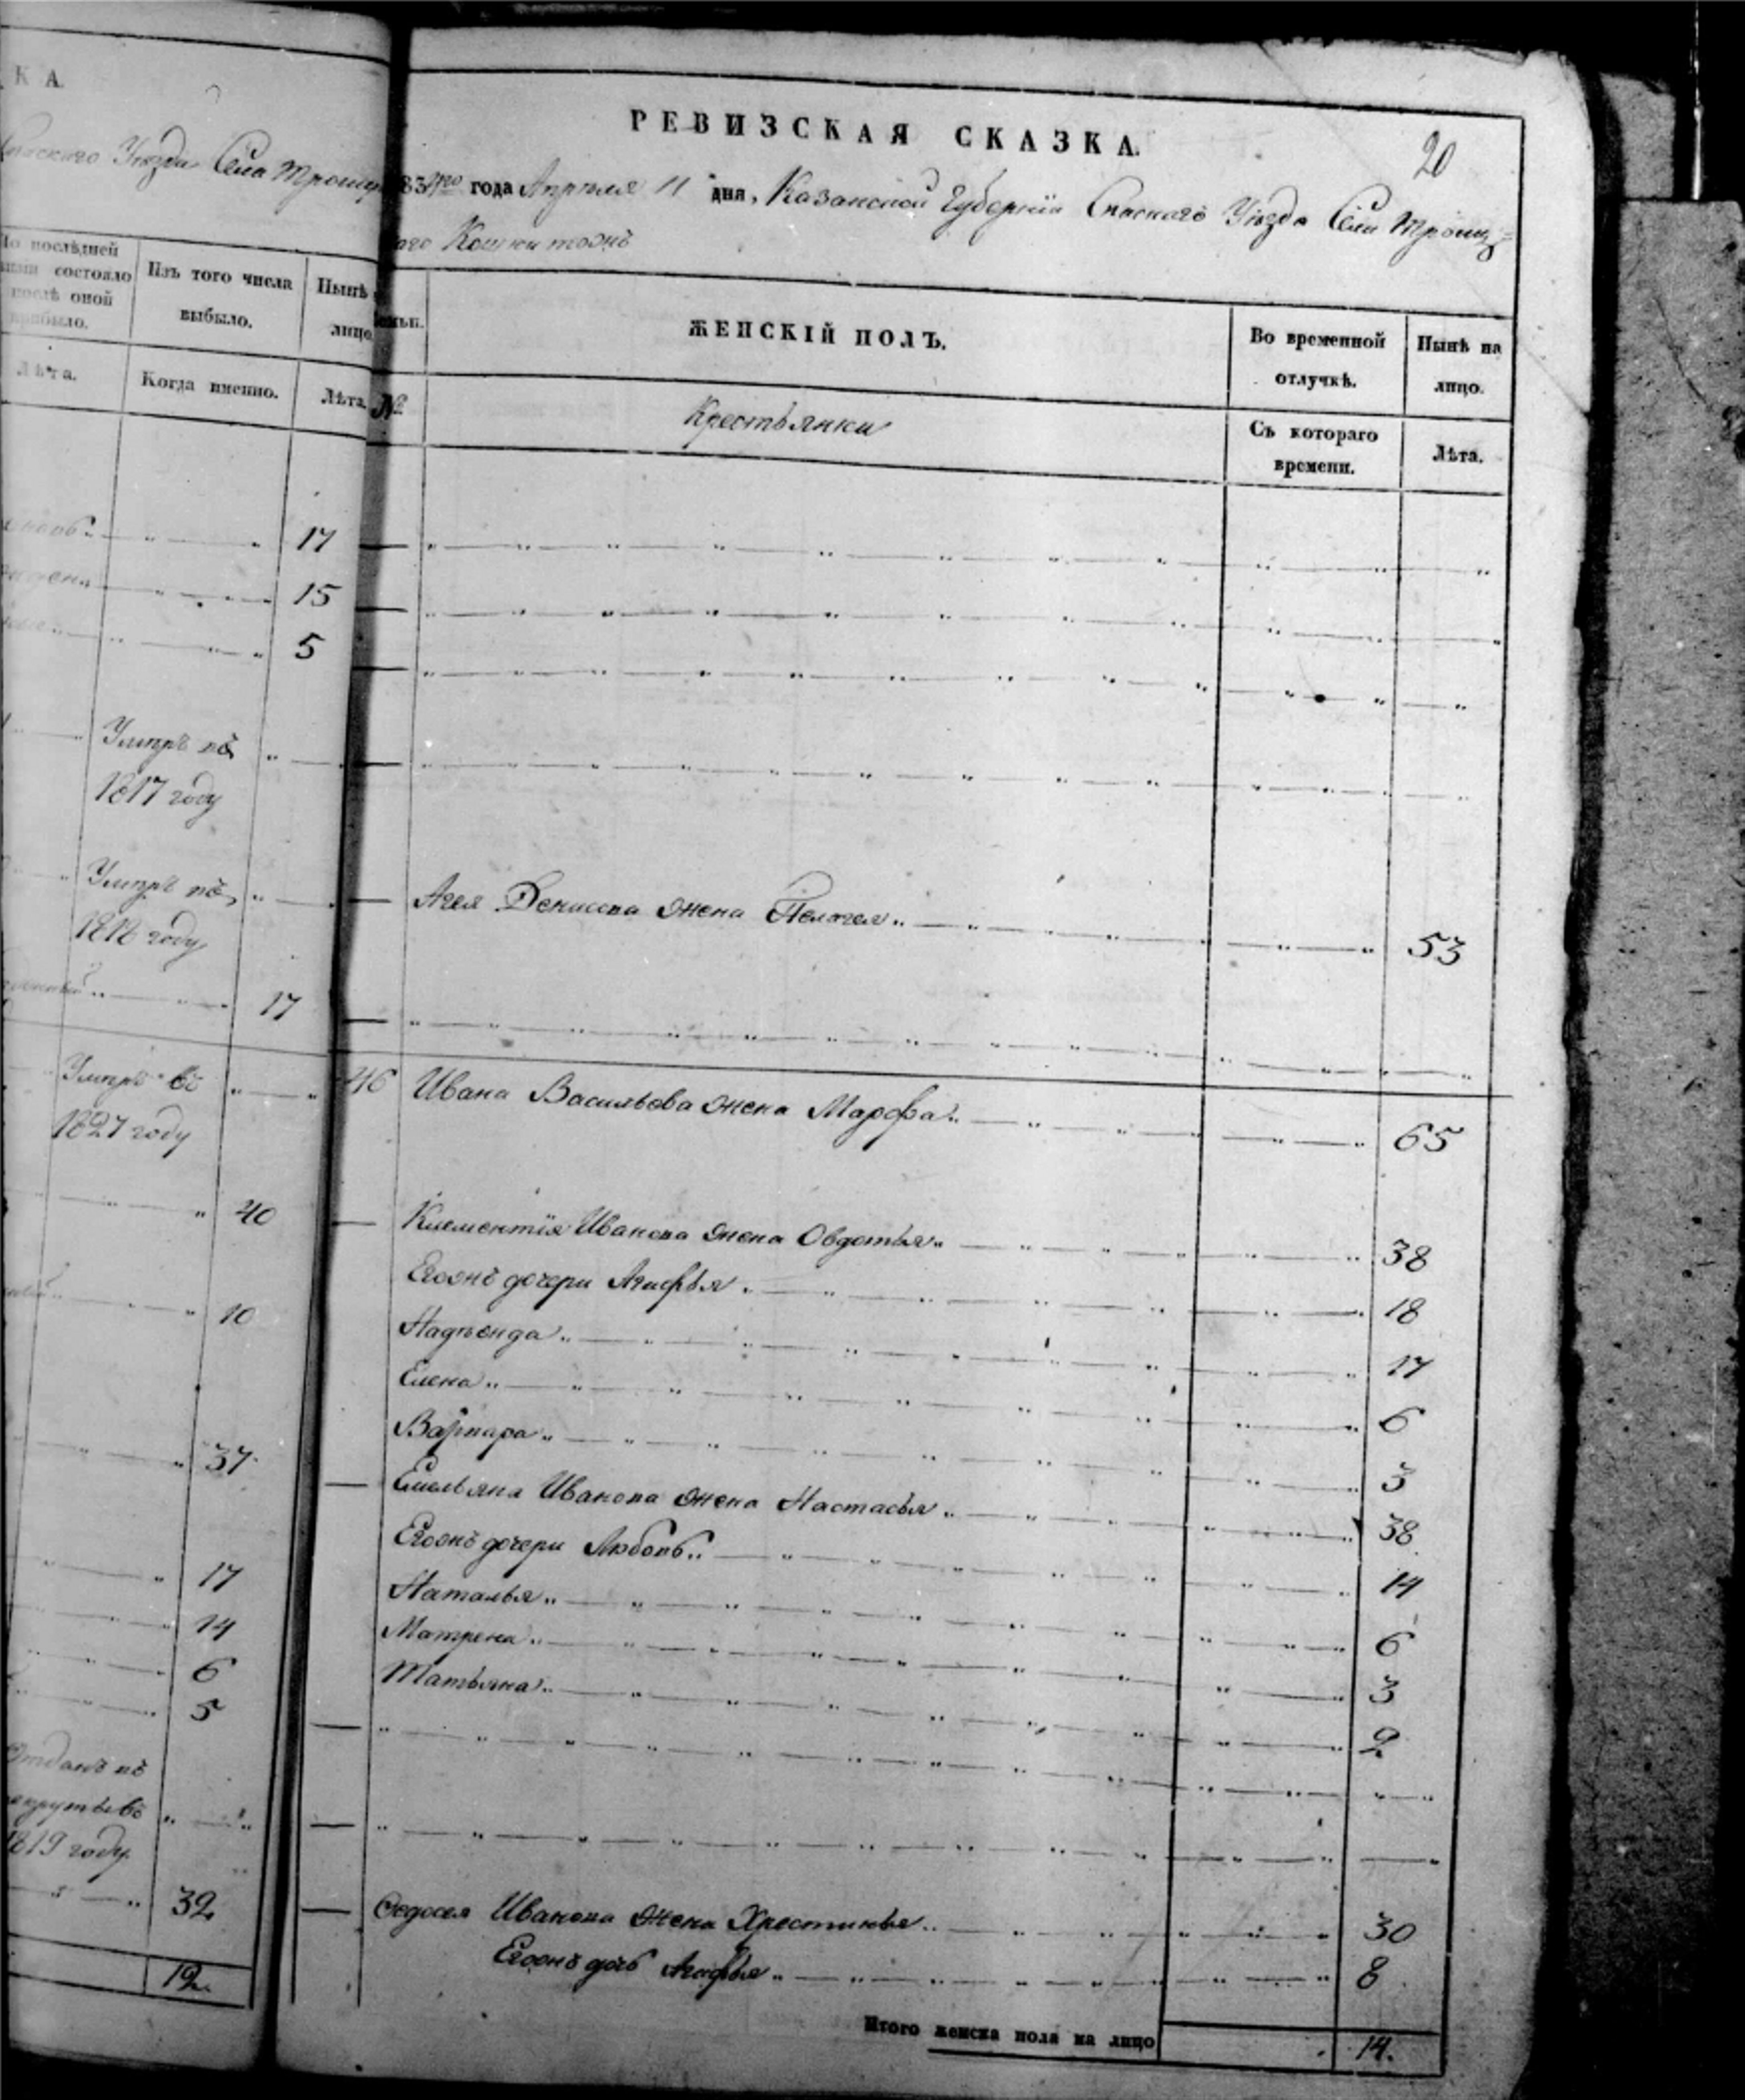 КА.
Спаскаго Уѣзда Села Троиц
По послѣдней
ревизіи состояло
и послѣ оной
прибыло.
Изъ того числа
выбыло.
Нынѣ
лицо
Лѣта.
Когда именно.
Лѣта.
17
15
5
Умре въ
1817 году
Умре въ
1818 году
17
Умре въ
1827 году
40
10
37
17
14
6
5
Отданъ въ
рекруты въ
1819 году
32
12.
РЕВИЗСКАЯ СКАЗКА.
20
834го года Апреля 11 дня, Казанской Губерніи Спаскаго Уѣзда Села Троиц=
каго Кошки тожъ
Семьи.
ЖЕНСКІЙ ПОЛЪ.
Во временной
отлучкѣ.
Нынѣ на
лицо.
№
Крестьянки
Съ котораго
времени.
Лѣта.
Агея Денисова жена Пелагея 53
46 Ивана Васильева жена Марфа 65
Клементія Ивановa жена Овдотья 38
Егожъ дочери Агафья 18
Надежда 17
Елена 6
Варвара 3
Емельяна Иванова жена Настасья 38
Егожъ дочери Любовь 14
Наталья 6
Матрена 3
Татьяна 2
Федосея Иванова жена Хрестинья 30
Егожъ дочь Агафья 8
Итого женска пола на лицо 14.